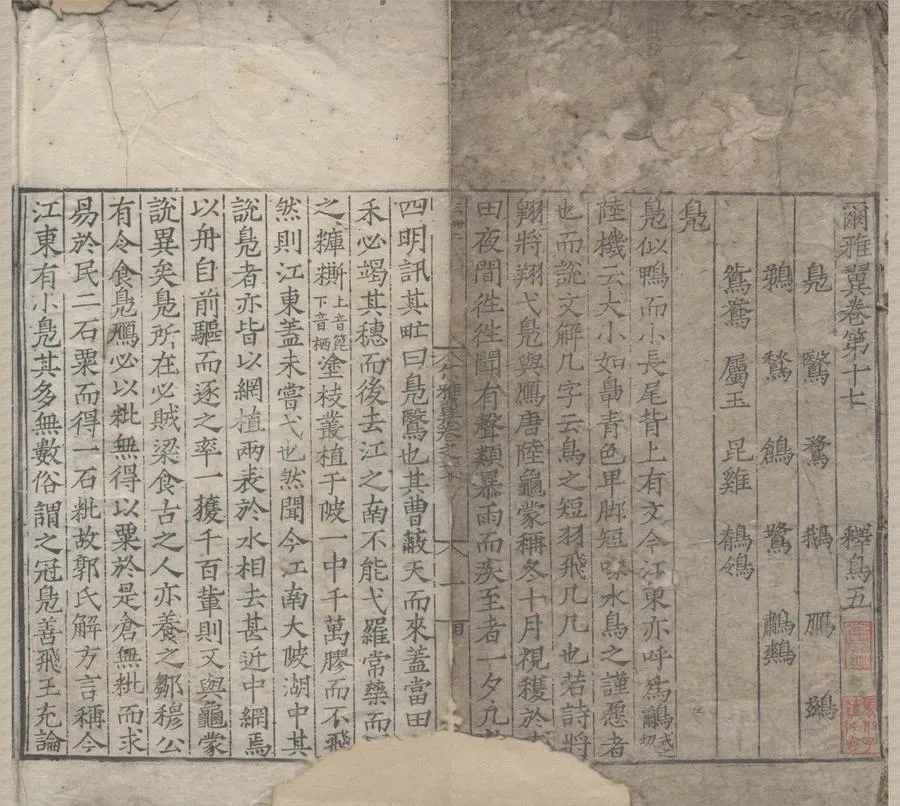 爾雅翼卷第十七 釋鳥五
鳧 鷖 鶩 鵝 鴈 鷁
鵜 鶖 鶬 鷺
鴛鴦 屬玉 昆雞 鶺鴒
鳧
鳧似鴨而小長尾背上有文今江東亦呼爲鸍
陸機云大小如鳧青色卑脚短喙水鳥之謹愿者
也而說文解几字云鳥之短羽飛几几也若詩將
翱將翔弋鳧與鴈唐陸龜蒙稱冬十月視穫於
田夜間徃徃聞有聲類暴雨而疾至者一夕凡
四明訊其甿曰鳧鷖也其曹蔽天而來蓋當田
禾必竭其穗而後去江之南不能弋羅常藥而
之穅糠上音箆下音栖塗枝叢植于陂一中千萬膠而不飛
然則江東蓋未嘗弋也然聞今江南大陂湖中其
說鳧者亦皆以網植兩表於水相去甚近中網焉
以舟自前驅而逐之率一獲千百輩則又與龜蒙
說異矣鳧所在必賊粱食古之人亦養之鄒穆公
有令食鳧鴈必以粃無得以粟於是倉無粃而求
易於民二石粟而得一石粃故郭氏解方言稱今
江東有小鳧其多無數俗謂之冠鳧善飛王充論